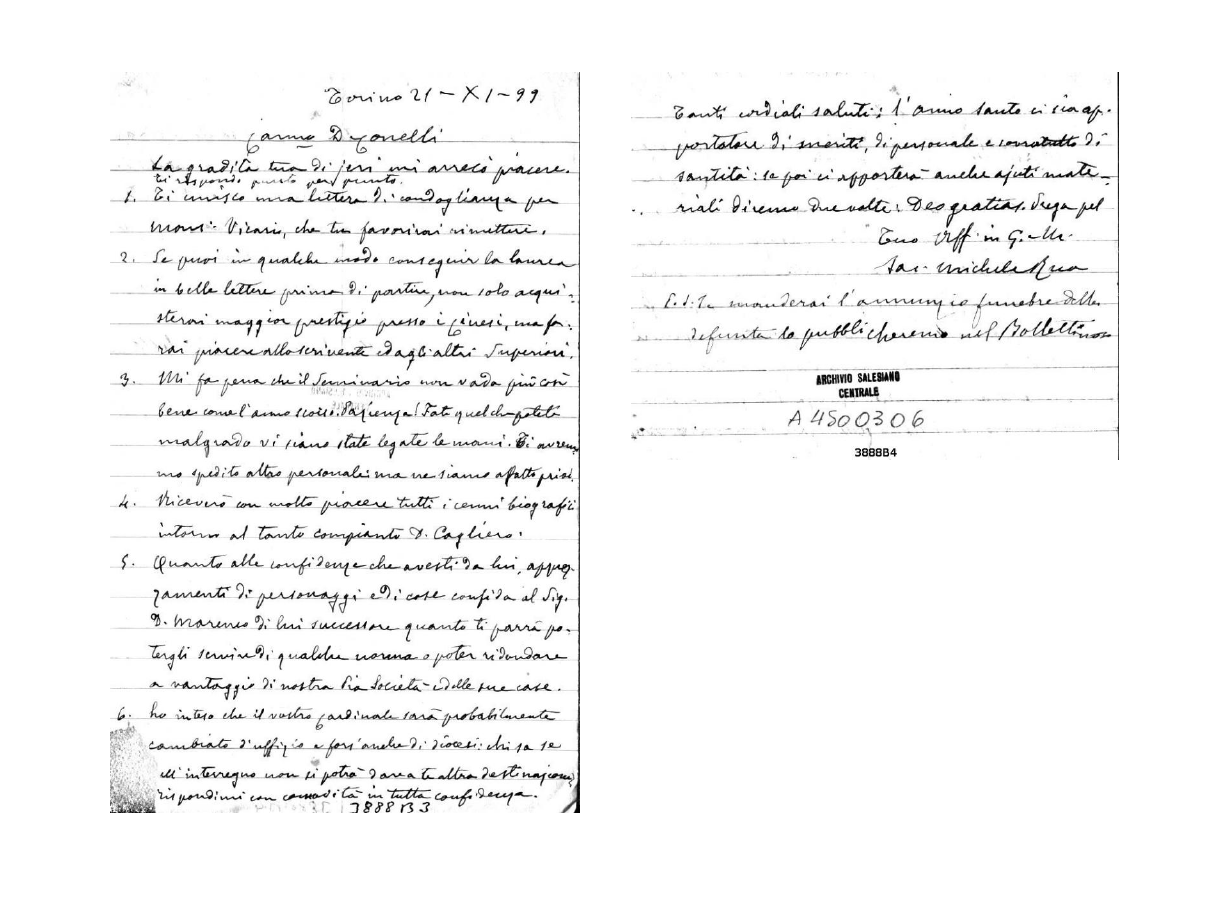 Torino 21 - XI - 99
Carmo D. Conelli
La gradita tua di jeri mi arrecò piacere.
Ti rispondo punto per punto.
1. Ti unisco una lettera di condoglianza per
mons. Vicario, che tu favorirai rimettere.
2. Se puoi in qualche modo conseguir la laurea
in belle lettere prima di partire, non solo acqui-
sterai maggior prestigio presso i Cinesi, ma fa-
rai piacere allo scrivente ed agli altri Superiori.
3. Mi fa pena che il Seminario non vada più così
bene come l'anno scorso. Pazienza! Fate quel che potete
malgrado vi siano state legate le mani. Ti avrem-
mo spedito altro personale: ma ne siamo affatto privi.
4. Riceverò con molto piacere tutti i cenni biografici
intorno al tanto compianto D. Cagliero.
5. Quanto alle confidenze che avesti da lui, apprez-
zamenti di personaggi e di cose confida al Sig.
D. Marenco di lui successore quanto ti parrà po-
tergli servire di qualche norma o poter ridondare
a vantaggio di nostra Pia Società e delle sue case.
6. ho inteso che il vostro Cardinale sarà probabilmente
cambiato d'uffizio e fors'anche di diocesi: chi sa se
nell'interregno non si potrà dare a te altra destinazione,
rispondimi con comodità in tutta confidenza.
3888B3
Tanti cordiali saluti; l'anno santo ci sia ap-
portatore di meriti, di personale e soprattutto di
santità: se poi ci apporterà anche ajuti mate-
riali diremo due volte: Deo gratias. Prega pel
Tuo aff. in G. e M.
Sac. Michele Rua
P.S. Se manderai l'annunzio funebre della
defunta lo pubblicheremo nel Bollettino
ARCHIVIO SALESIANO
CENTRALE
A4500306
3888B4